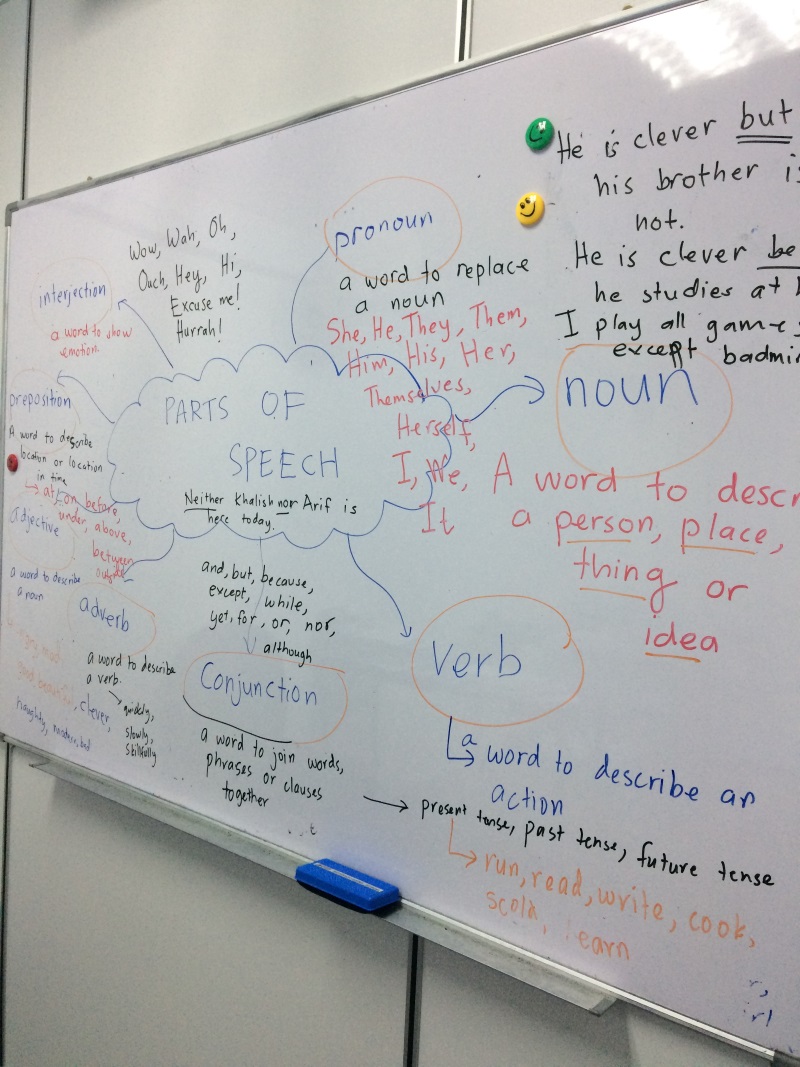 PARTS OF
SPEECH
Neither Khalish nor Arif is
here today.
interjection
a word to show
emotion.
Wow, Wah, Oh,
Ouch, Hey, Hi,
Excuse me!
Hurrah!
pronoun
a word to replace
a noun
She, He, They, Them,
Him, His, Her,
Themselves,
Herself,
I, We,
It
He is clever but
his brother is
not.
He is clever be
he studies at
I play all games
except badmi
noun
A word to descr
a person, place,
thing or
idea
verb
a word to describe an
action
present tense, past tense, future tense
run, read, write, cook,
scold, learn
and, but, because,
except, while,
yet, for, or, nor,
although
Conjunction
a word to join words,
phrases or clauses
together
preposition
A word to describe
location or location
in time
at, on before,
under, above,
between
adjective
a word to describe
a noun
clever,
naughty,
adverb
a word to describe
a verb.
quickly,
slowly,
skillfully